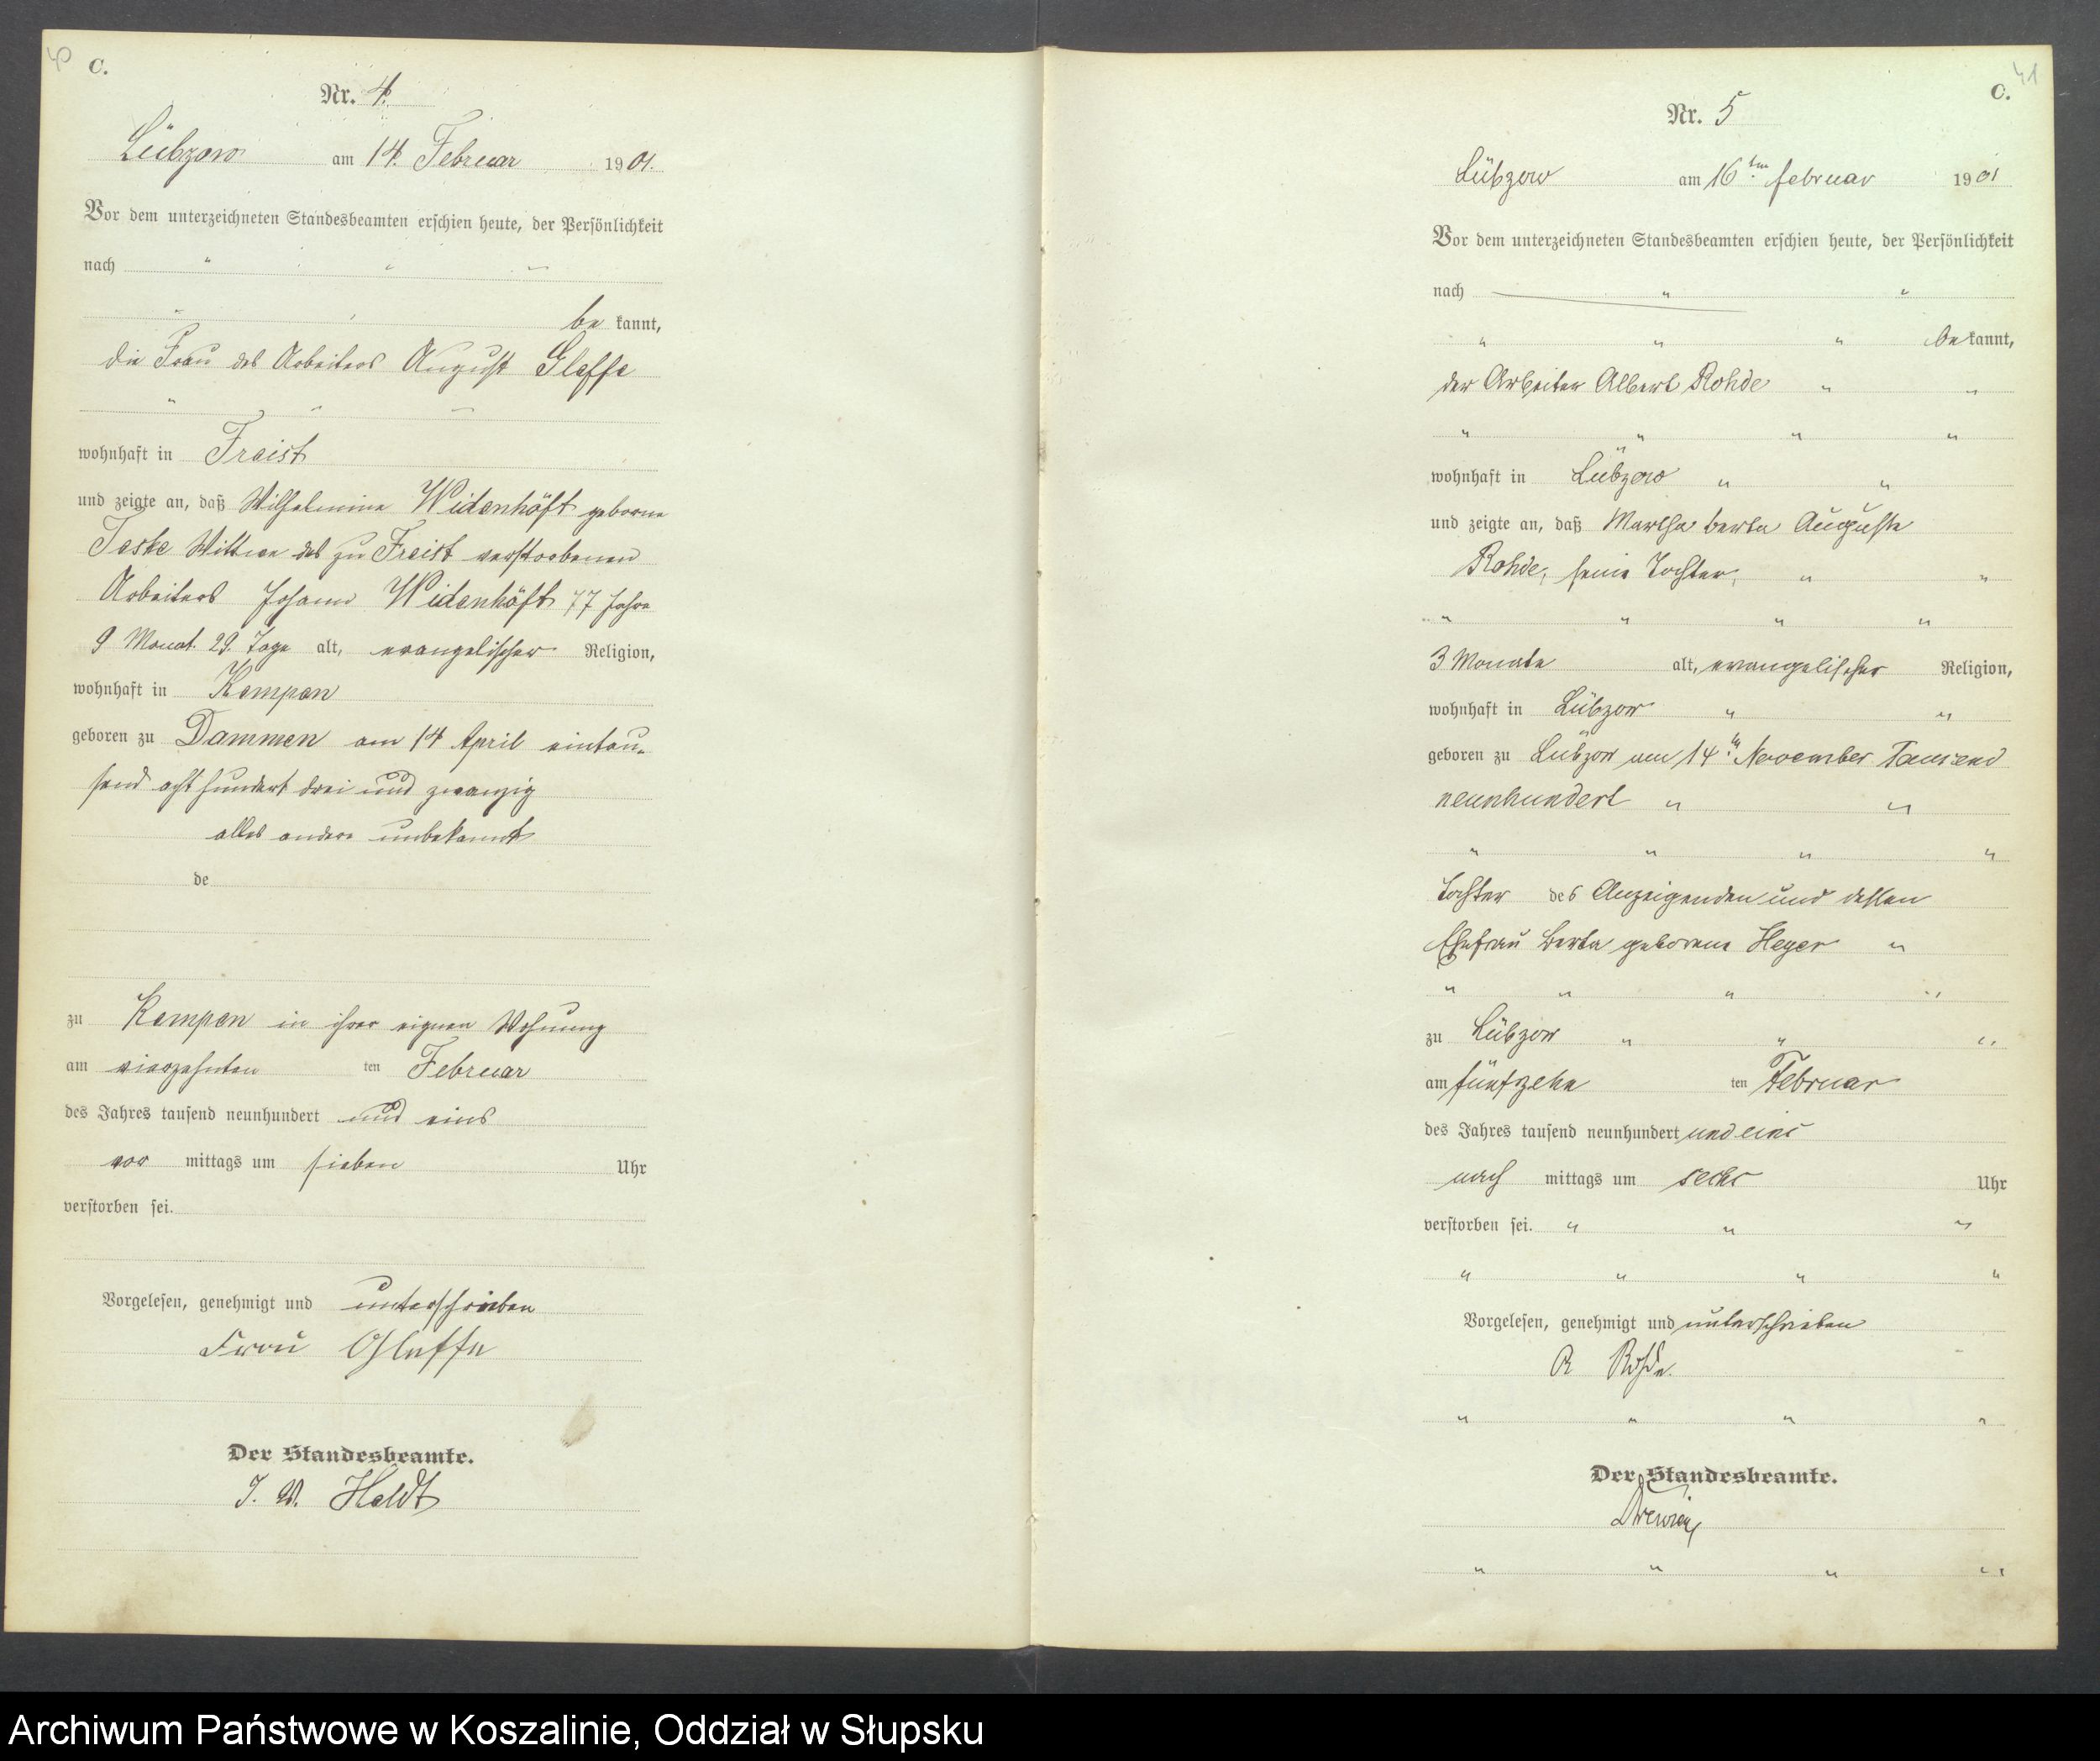 40
C.
Nr. 4.
Lübzow am 14. Februar 1901.
Vor dem unterzeichneten Standesbeamten erschien heute, der Persönlichkeit
nach " " "
" " be kannt,
die Frau des Arbeiters August Gleffe
" " "
wohnhaft in Freist
und zeigte an, daß Wilhelmine Widenhöft geborne
Teske Wittwe des zu Freist verstorbenen
Arbeiters Johann Widenhöft 77 Jahre
9 Monat. 29. Tage alt, evangelischer Religion,
wohnhaft in Kempen
geboren zu Dammen am 14 April eintau-
send acht hundert drei und zwanzig
alles andere unbekannt
de
zu Kempen in ihrer eignen Wohnung
am vierzehnten ten Februar
des Jahres tausend neunhundert und eins
vor mittags um sieben Uhr
verstorben sei.
Vorgelesen, genehmigt und unterschrieben
Frau Gleffe
Der Standesbeamte.
J. V. Holdt
41
C.
Nr. 5
Lübzow am 16ten februar 1901
Vor dem unterzeichneten Standesbeamten erschien heute, der Persönlichkeit
nach " "
" " " be kannt,
der Arbeiter Albert Rohde " "
" " " "
wohnhaft in Lübzow " "
und zeigte an, daß Martha berta Auguste
Rohde, seine Tochter, " "
" " " "
3 Monate alt, evangelischer Religion,
wohnhaft in Lübzow " "
geboren zu Lübzow am 14ten November Tausend
neunhundert " "
" " " "
Tochter des Anzeigenden und dessen
Ehefrau berta geborene Heyer "
" " " "
zu Lübzow " " "
am fünfzehn ten Februar
des Jahres tausend neunhundert und eins
nach mittags um sechs Uhr
verstorben sei. " " "
" " " "
Vorgelesen, genehmigt und unterschrieben
A Rohde.
" " " "
Der Standesbeamte.
" " " "
Archiwum Państwowe w Koszalinie, Oddział w Słupsku